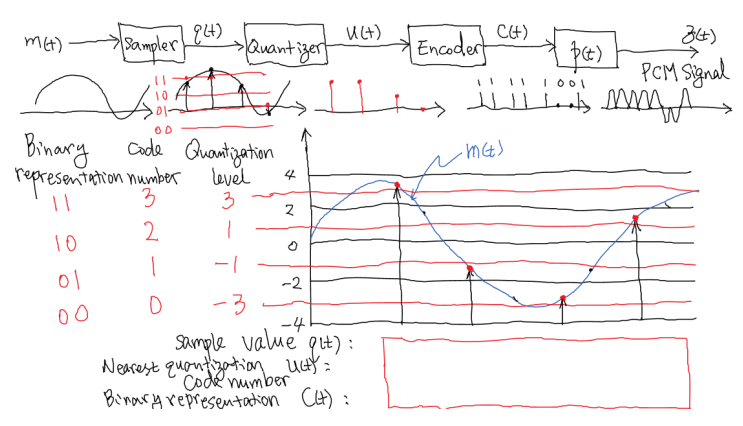 m(t) Sampler q(t) Quantizer u(t) Encoder C(t) p(t) z(t)
PCM Signal
11
10
01
00
11 11 1001
Binary representation Code number Quantization level
11 3 3
10 2 1
01 1 -1
00 0 -3
m(t)
4
2
0
-2
-4
Sample value q(t) :
Nearest quantization u(t) :
Code number
Binary representation C(t) :